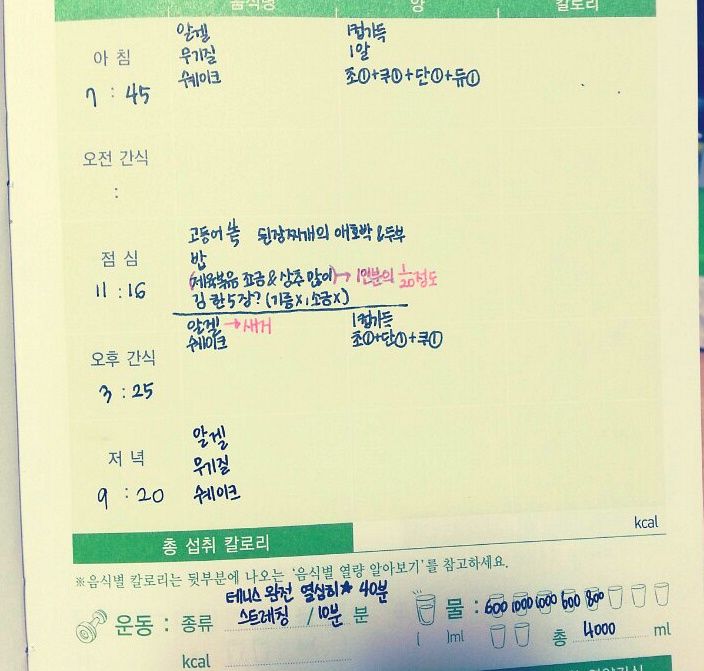 음식명 양 칼로리
알겔 1컵가득
무기질 1알
아 침 쉐이크 초①+쿠①+단①+듀①
7 : 45
오전 간식
:
고등어 쏙 된장찌개의 애호박 & 두부
점 심 밥
(제육볶음 조금 & 상추 많이) → 1인분의 1/20 정도
11 : 16 김 한 5장? (기름X, 소금X)
알겔 → 새거 1컵가득
쉐이크 초①+단①+쿠①
오후 간식
3 : 25
알겔
저 녁 무기질
9 : 20 쉐이크
총 섭취 칼로리 kcal
※음식별 칼로리는 뒷부분에 나오는 '음식별 열량 알아보기'를 참고하세요.
테니스 완전 열심히★ 40분
운동 : 종류 스트레칭 / 10분 분 물 : 600 1000 1000 600 800
( )ml 총 4000 ml
kcal